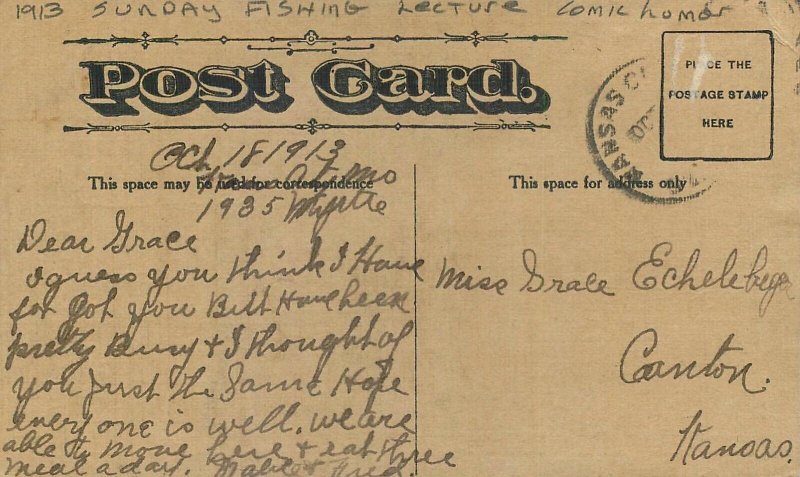 1913 SUNDAY FISHING Lecture Comic humor
Post Card.
PLACE THE
POSTAGE STAMP
HERE
KANSAS CI
OCT
Oct 18 1913
This space may be used for correspondence
Mo
1935 Myrtle
This space for address only
Dear Grace
I guess you think I Have
for got you But Have been
pretty Busy & I thought of
you Just the Same Hope
every one is well. we are
able to move here & eat three
meal a day. Mable & Fred.
Miss Grace
Canton.
Kansas.